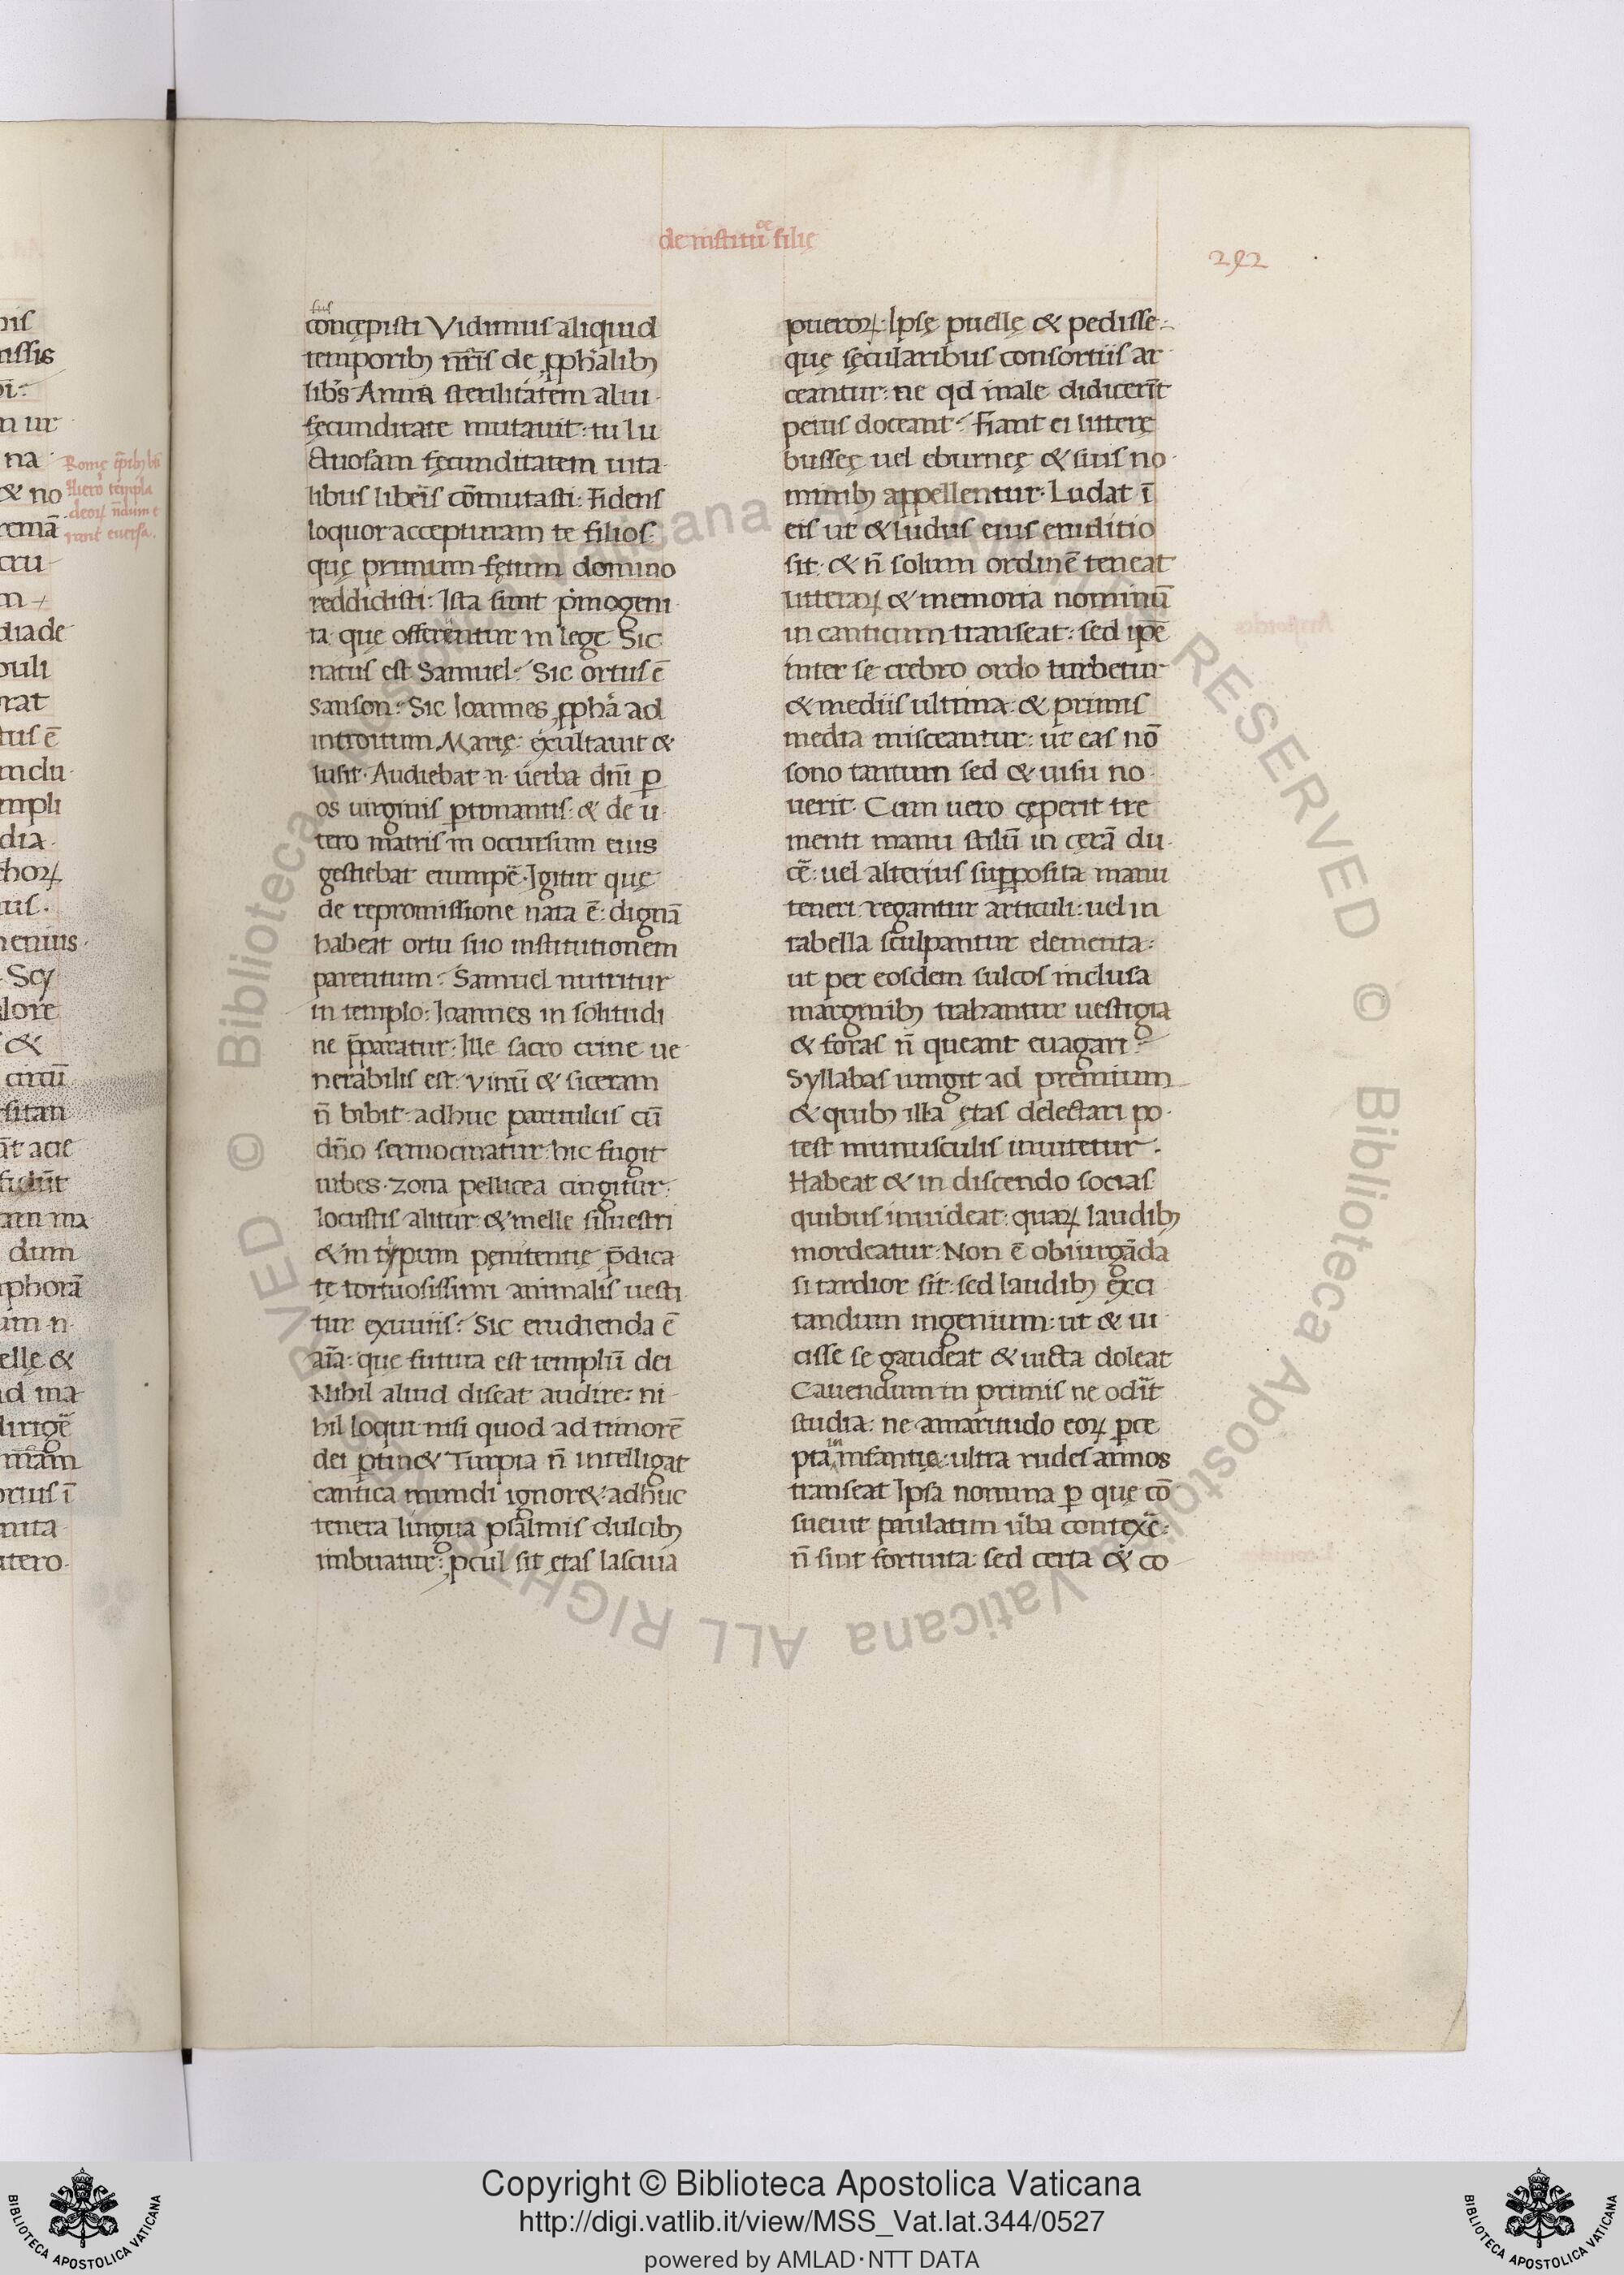 de institutōe filię
292
suis
concępisti Vidimus aliquid
temporibꝫ nr̄is de ꝓphalibꝫ
lib's Anna sterilitatem alui
fęcunditate mutauit: tu lu
ctuosam fęcunditatem uita
libus liberis cōmutasti: Fidens
loquor accepturam te filios:
quę primum fętum domino
reddidisti: Ista sunt p'mogeni
ta que offerentur in lege Sic
natus est Samuel: Sic ortus ē
sanson: Sic Ioannes ꝓpha ad
introitum Marię: exultauit &
lusit. Audiebat .n. uerba dn̄i ꝑ
os uirginis ꝑtonantis: & de u
tero matris in occursum eius
gestiebat erumpē. Igitur quę
de repromissione nata ē: dignā
habeat ortu suo institutionem
parentum: Samuel nutritur
in templo: Ioannes in solitudi
ne p̄paratur: Ille sacro crine ue
nerabilis est: vinū & siceram
n̄ bibit: adhuc paruulus cū
dn̄o sermocinatur: hic fugit
urbes. zona pellicea cingitur:
locustis alitur & melle siluestri
& in typum pęnitentię p̄dica
tę tortuosissimi animalis uesti
tur exuuiis: Sic erudienda ē
aīa: que futura est templū dei
Nihil aliud discat audire: ni
hil loqui nisi quod ad timorē
dei ꝑtin& Turpia n̄ intelligat
cantica mundi ignor& adhuc
tenera lingua psalmis dulcibꝫ
imbuatur: ꝓcul sit ętas lasciua
pueroꝝ: Ipsę puellę & pedisse
quę sęcularibus consortiis ar
ceantur: ne qd male didicerīt
peius doceant: Fiant ei litterę
bussęę uel eburnęę & suis no
minibꝫ appellentur. Ludat ī
eis ut & ludus eius eruditio
sit: & n̄ solum ordinē teneat
litteraꝝ & memoria nominū
in canticum transeat: sed ip̄e
inter se crebro ordo turbetur
& mediis ultima: & primis
media misceantur: ut eas nō
sono tantum sed & uisu no
uerit. Cum uero cęperit tre
menti manu stilū in cerā du
cē: uel alterius supposita manu
teneri regantur articuli: uel in
tabella sculpantur elementa:
ut per eosdem sulcos inclusa
marginibꝫ trahantur uestigia
& foras n̄ queant euagari:
Syllabas iungit ad premium
& quibꝫ illa ętas delectari po
test munusculis inuitetur:
Habeat & in discendo socias
quibus inuideat: quaꝝ laudibꝫ
mordeatur: Non ē obiurgāda
si tardior sit: sed laudibꝫ exci
tandum ingenium: ut & ui
cisse se gaudeat & uicta doleat
Cauendum in primis ne oderit
studia: ne amaritudo eoꝝ ꝑce
pta in infantia: ultra rudes annos
transeat Ipsa nomina ꝑ quę cō
sueuit paulatim u'ba contexē:
n̄ sint fortuita: sed certa & co
Copyright © Biblioteca Apostolica Vaticana
http://digi.vatlib.it/view/MSS_Vat.lat.344/0527
powered by AMLAD·NTT DATA
BIBLIOTECA APOSTOLICA VATICANA
BIBLIOTECA APOSTOLICA VATICANA
© Biblioteca Apostolica Vaticana ALL RIGHTS RESERVED
© Biblioteca Apostolica Vaticana ALL RIGHTS RESERVED